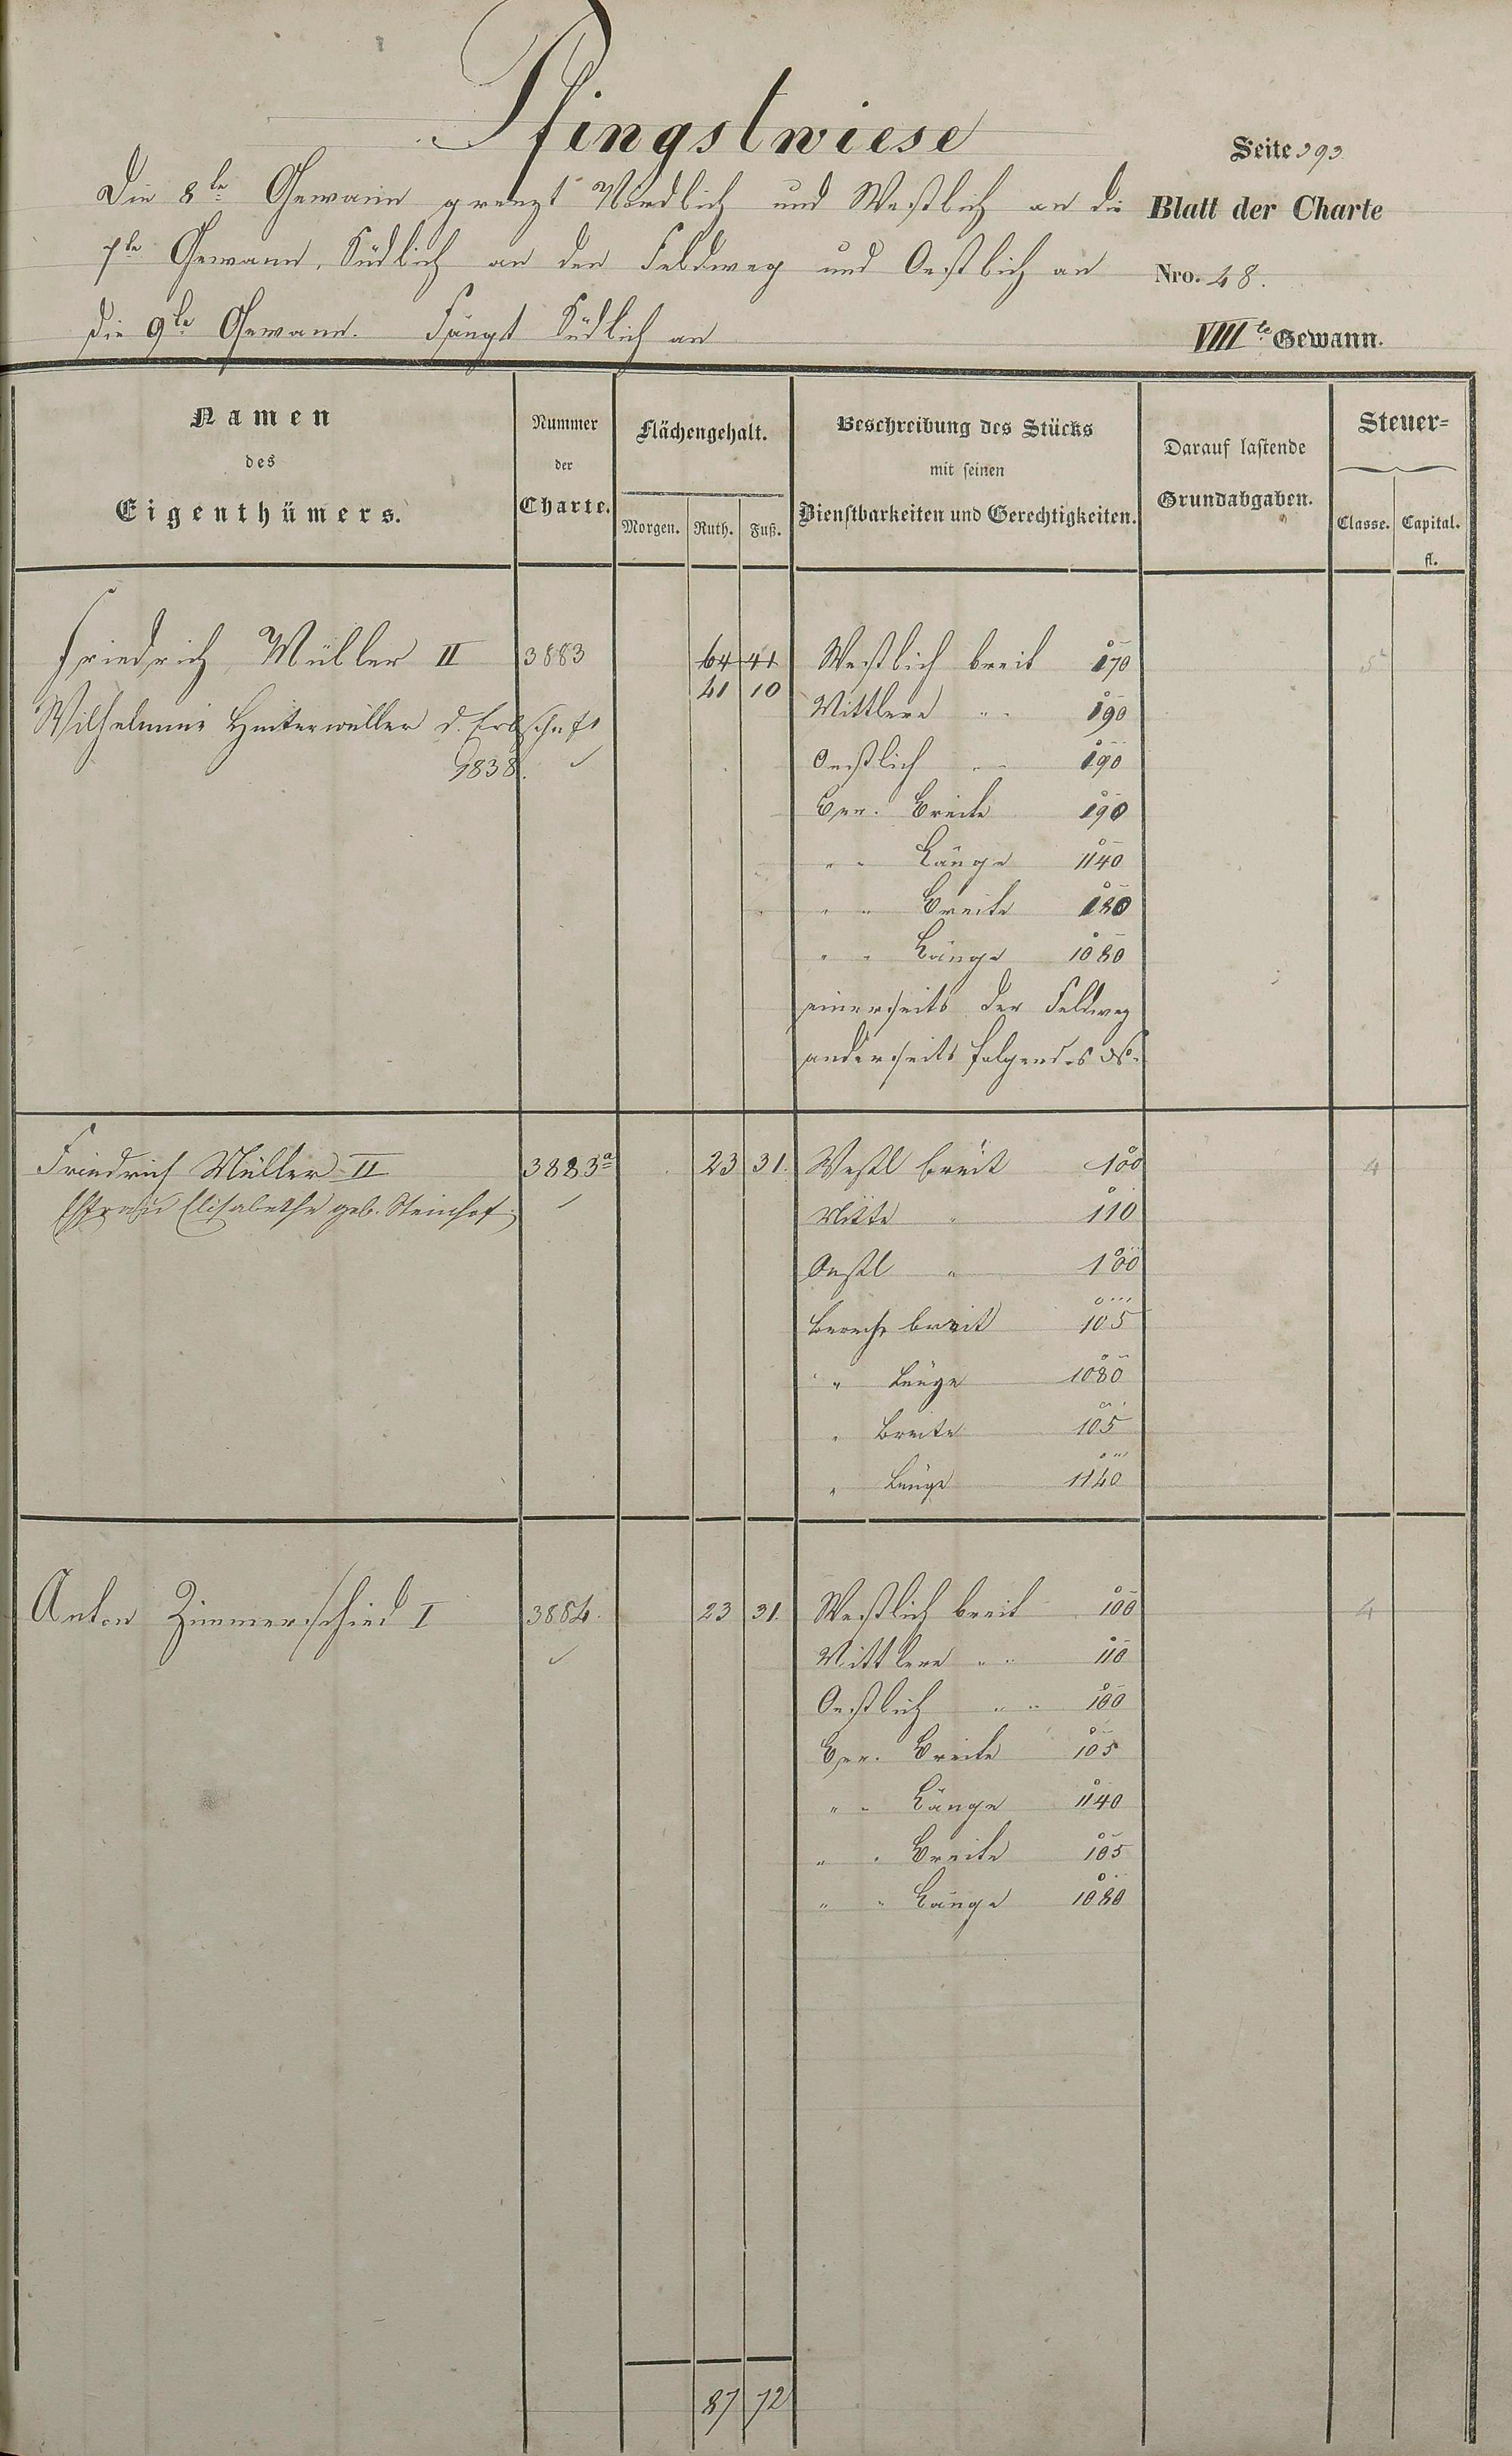 Pfingstwiese
Seite 393
Die 8te Gewann grenzt Nördlich und Westlich an die
Blatt der Charte
7te Gewann, Südlich an den Feldweg und Oestlich an
Nro. 48.
die 9te Gewann. Fängt Südlich an
VIIIte Gewann.
Namen
des
Eigenthümers.
Nummer
der
Charte.
Flächengehalt.
Morgen. Ruth. Fuß.
Beschreibung des Stücks
mit seinen
Dienstbarkeiten und Gerechtigkeiten.
Darauf lastende
Grundabgaben.
Steuer=
Classe. Capital.
fl.
Friedrich Müller II 3883 64 41 Westlich breit 170 5
41 10
Wilhelmine Hinterwäller d. Erbschaft Mittlere " " 190
1838. Oestlich " " 190
Ber. Breite 190
" " Länge 1140
" " Breite 180
" " Länge 1080
einerseits der Feldweg
anderseits folgendes
Friedrich Müller II 3883a 23 31. Westl breit 100 4
Ehefrau Elisabetha geb. Steinhof Mitte " 110
Oestl " 100
Berech breit 105
" Länge 1080
" Breite 105
" Länge 1140
Anton Zimmerschied I 3884. 23 31. Westlich breit 100 4
Mittlere " " 110
Oestlich " " 100
Ber. Breite 105
" " Länge 1140
" " Breite 105
" " Länge 1080
87 72